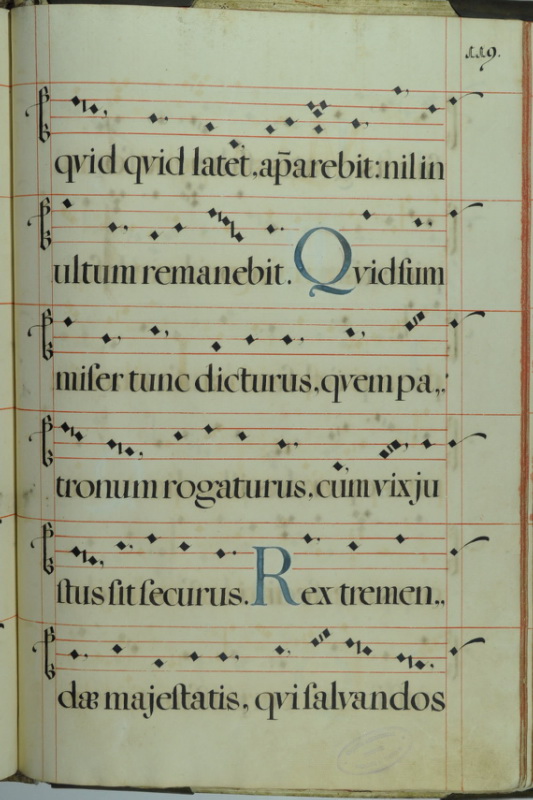 119.
qvid qvid latet, ap̄arebit: nil in
ultum remanebit. Qvid sum
miser tunc dicturus, qvem pa,,
tronum rogaturus, cum vix ju
stus sit securus. Rex tremen,,
dæ majestatis, qvi salvandos